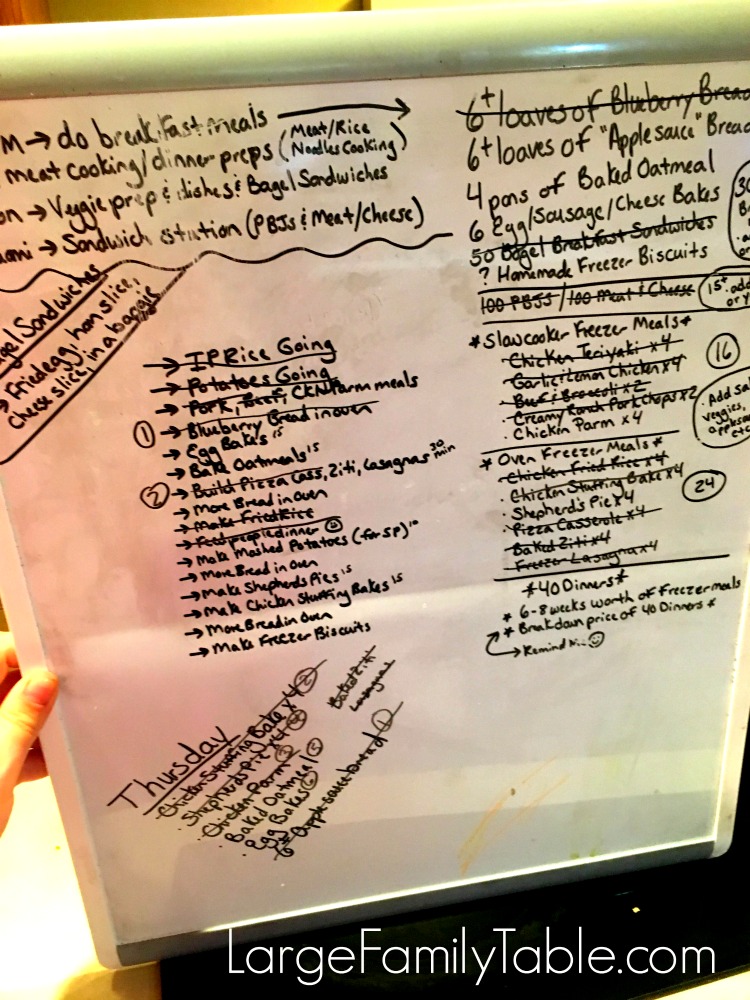 M → do breakfast meals →
meat cooking/dinner preps (Meat/Rice
Noodles Cooking)
on → Veggie prep & dishes & Bagel Sandwiches
ami → Sandwich station (PBJs & Meat/Cheese)
gel Sandwiches
→ Fried egg, ham slice,
cheese slice, in a baggie
→ IP Rice Going
→ Potatoes Going
→ Pork, Beef, CKN Parm meals
① → Blueberry Bread in oven
→ Egg Bakes 15
→ Bake Oatmeals 15
② → Build Pizza Cass, Ziti, Lasagnas 30 min
→ More Bread in Oven
→ Make Fried Rice
→ Feed people dinner
→ Make Mashed Potatoes (for SP) 10
→ More Bread in Oven
→ Make Shepherds Pies 15
→ Make Chicken Stuffing Bakes 15
→ More Bread in Oven
→ Make Freezer Biscuits
Thursday
· Chicken Stuffing Bake x 4 ②
· Shepherds Pie x 4
· Chicken Parm
· Baked Oatmeal ⑤
· Egg Bakes ⑥
6+ Apple sauce bread ①
Baked Ziti
Lasagnas
6+ loaves of Blueberry Bread
6+ loaves of "Applesauce" Bread
4 pans of Baked Oatmeal
6 Egg/Sausage/Cheese Bakes
50 Bagel Breakfast Sandwiches
? Homemade Freezer Biscuits
30
100 PBJS / 100 Meat & Cheese
* Slowcooker Freezer Meals *
· Chicken Teriyaki x 4
· Garlic Lemon Chicken x 4
· Beef & Broccoli x 2
· Creamy Ranch Pork Chops x 2
· Chicken Parm x 4
16
Add
veggies,
* Oven Freezer Meals *
· Chicken Fried Rice x 4
· Chicken Stuffing Bake x 4
· Shepherd's Pie x 4
· Pizza Casserole x 4
· Baked Ziti x 4
· Freezer Lasagna x 4
24
* 40 Dinners *
* 6-8 weeks worth of Freezer meals
* Breakdown price of 40 Dinners *
→ Remind
LargeFamilyTable.com